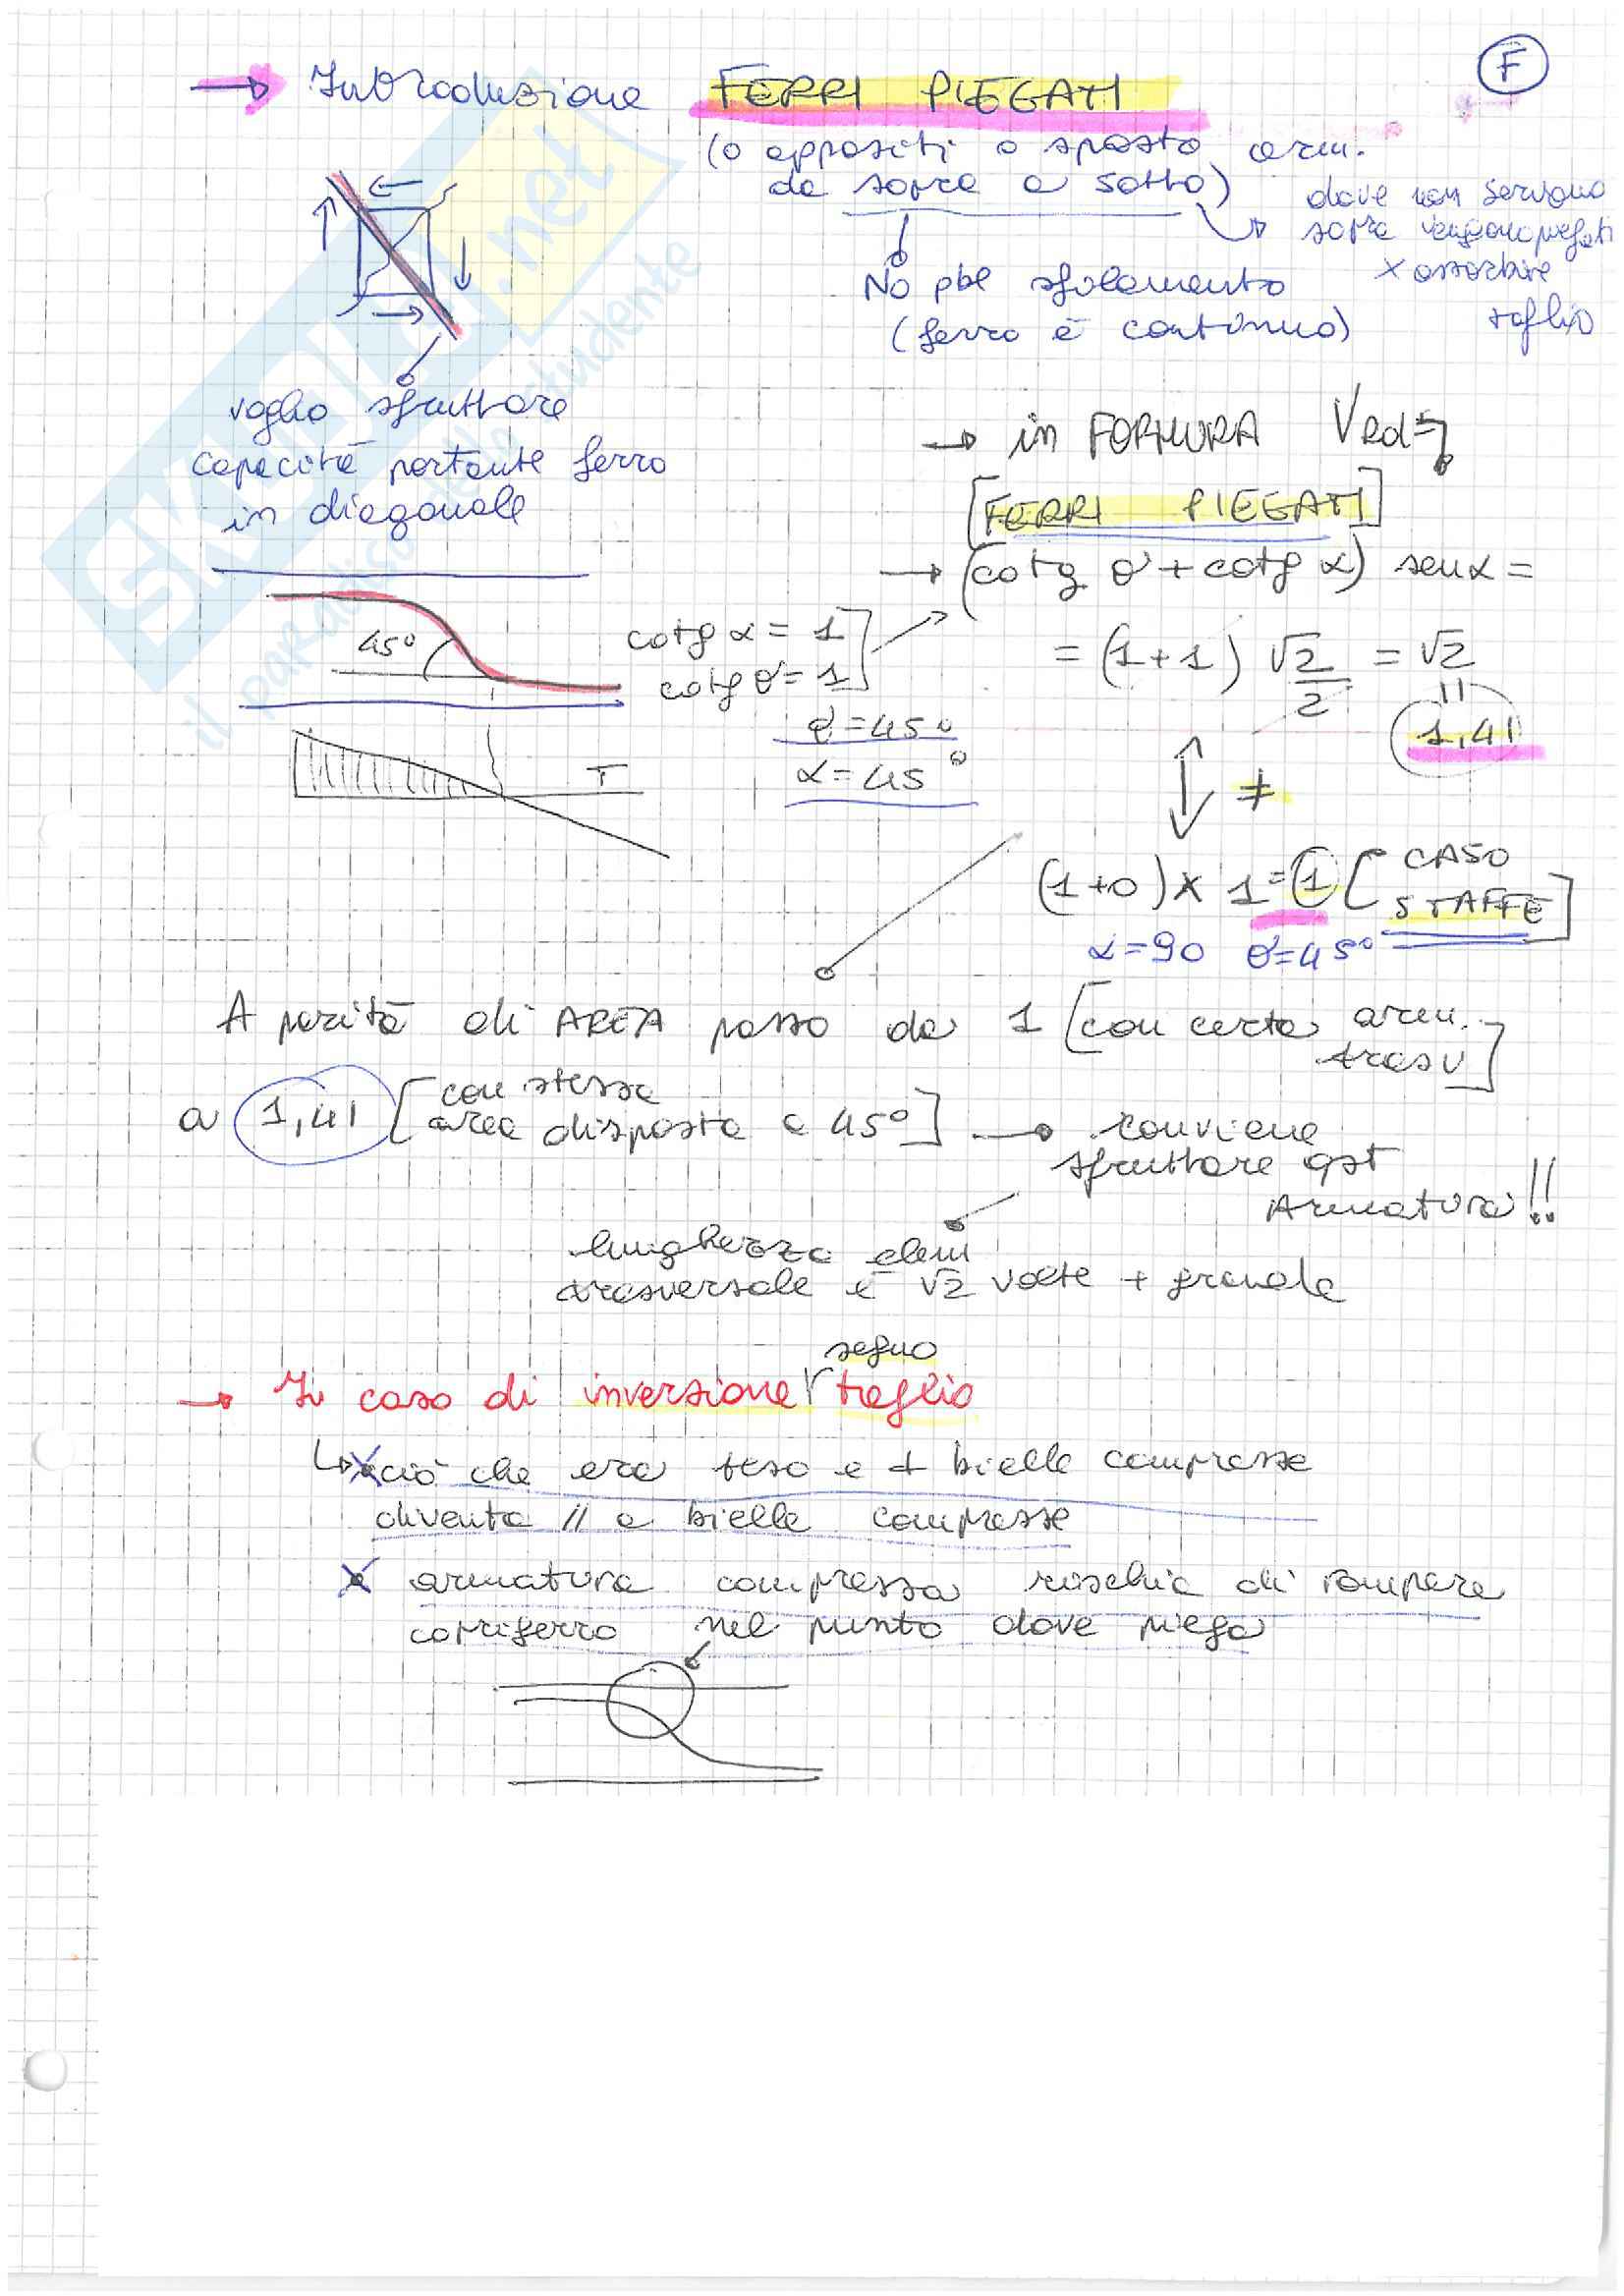 F
→ Introduzione FERRI PIEGATI
(o appositi o sposto arm.
da sopra a sotto)
dove non servono
sopra vengono piegati
x assorbire
taglio
No pbl sfilamento
(ferro è continuo)
voglio sfruttare
capacità portante ferro
in diagonale
→ in FORMULA VRd=
[FERRI PIEGATI]
→ (cotg θ + cotg α) sen α =
45°
cotg α = 1
cotg θ = 1
= (1+1) √2/2 = √2
=
1,41
θ = 45°
α = 45°
T
≠
(1+0) x 1 = 1 [CASO
STAFFE]
α=90 θ=45°
A parità di AREA passo da 1 [con certa arm.
trasv]
a 1,41 [con stessa
area disposta a 45°] → conviene
sfruttare qst
Armatura!!
lunghezza elem
trasversale è √2 volte + grande
segno
→ In caso di inversione taglio
↳ x ciò che era teso e ⊥ bielle compresse
diventa // a bielle compresse
x armatura compressa rischia di rompere
copriferro nel punto dove piega
SKUOLA.net
il paradiso dello studente